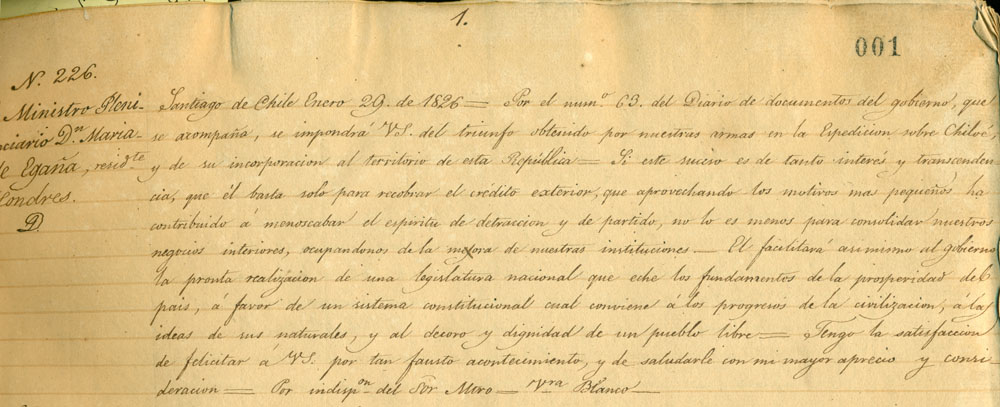 1.
001
N. 226.
Ministro Pleni-
ciario Dn. Maria-
de Egaña, residte
Londres.
D
Santiago de Chile Enero 29. de 1826 = Por el numo 63. del Diario de documentos del gobierno, que
se acompaña, se impondrá VS. del triunfo obtenido por nuestras armas en la Espedicion sobre Chiloé,
y de su incorporacion al territorio de esta República = Si este suceso es de tanto interés y transcenden
cia, que él basta solo para recobrar el crédito exterior, que aprovechando los motivos mas pequeños ha
contribuido á menoscabar el espiritu de detraccion y de partido, no lo es menos para consolidar nuestros
negocios interiores, ocupandonos de la mejora de nuestras instituciones — El facilitará asimismo al gobierno
la pronta realizacion de una legislatura nacional que eche los fundamentos de la prosperidad del
pais, á favor de un sistema constitucional cual conviene á los progresos de la civilizacion, á la
ideas de sus naturales, y al decoro y dignidad de un pueblo libre = Tengo la satisfaccion
de felicitar a VS. por tan fausto acontecimiento, y de saludarle con mi mayor aprecio y consi
deracion = Por indispon del Sor Mtro — Vra Blanco —